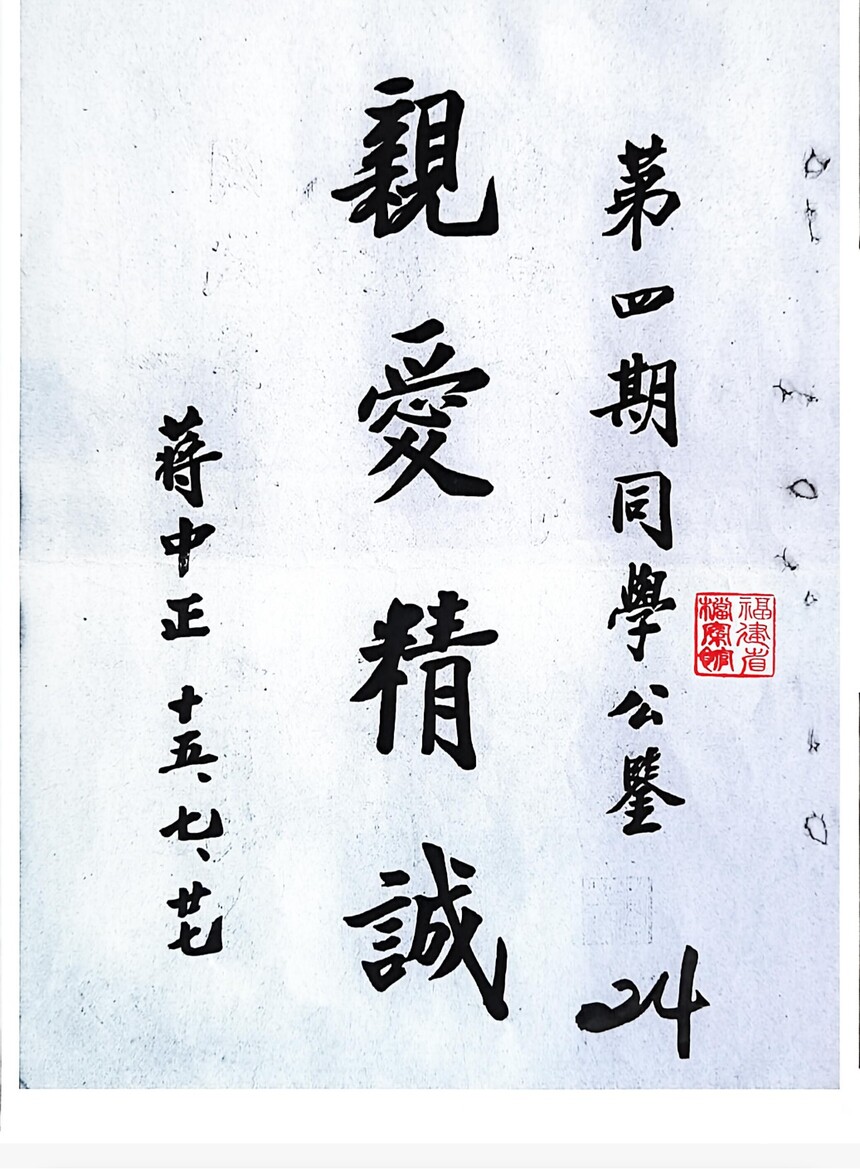 第四期同學公鑒
24
福建省
檔案館
親愛精誠
蔣中正 十五、七、廿七